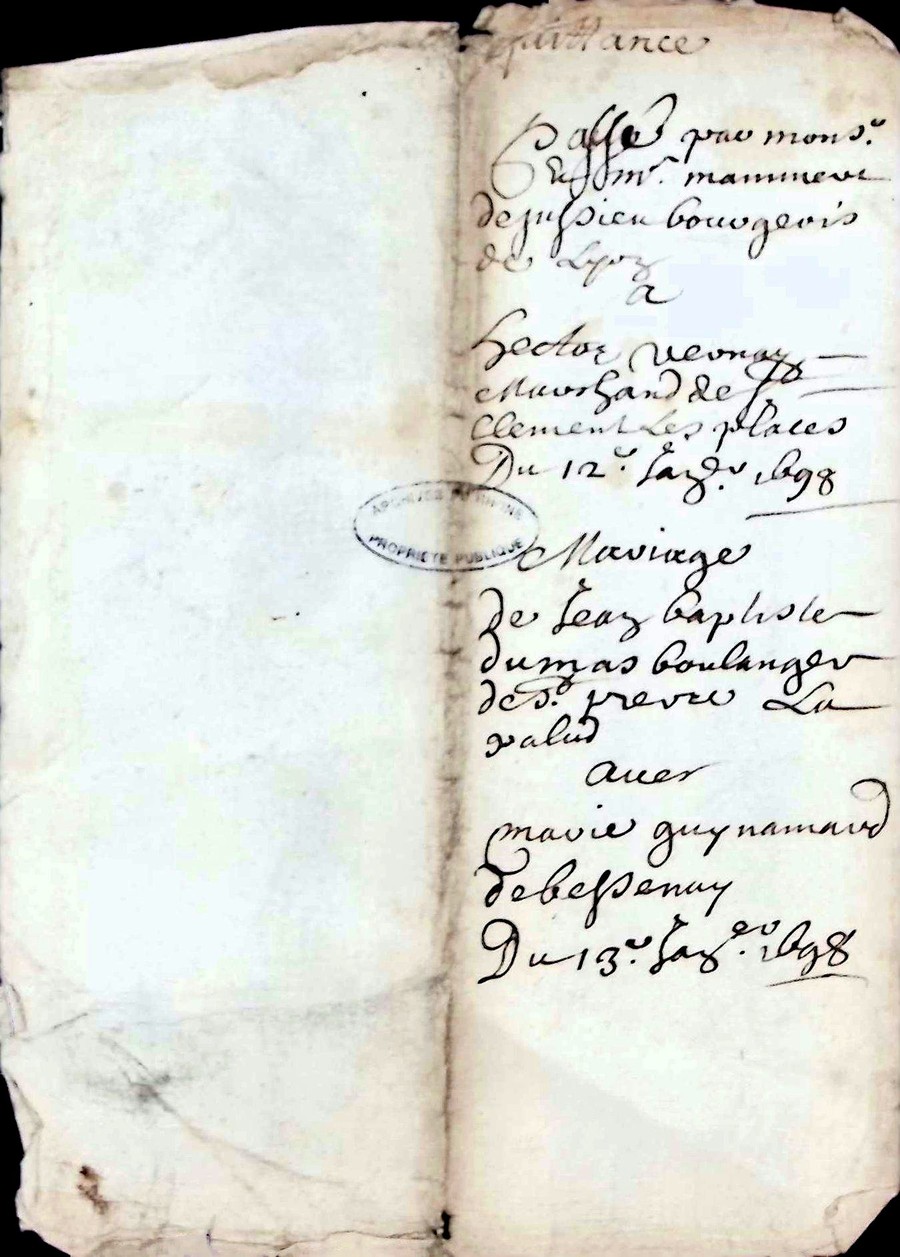 quittance
Passé par mons.r
Mr. mammert
de Jussieu bourgeois
de Lyon
a
hector vernay
Marchand de St
Clement Les places
Du 12.e Janv.r 1698
ARCHIVES
PROPRIETE PUBLIQUE
Mariage
de Jean baptiste
dumas boulanger
de St. pierre La
palud
avec
marie guynamard
de bessenay
Du 13.e Jan.er 1698